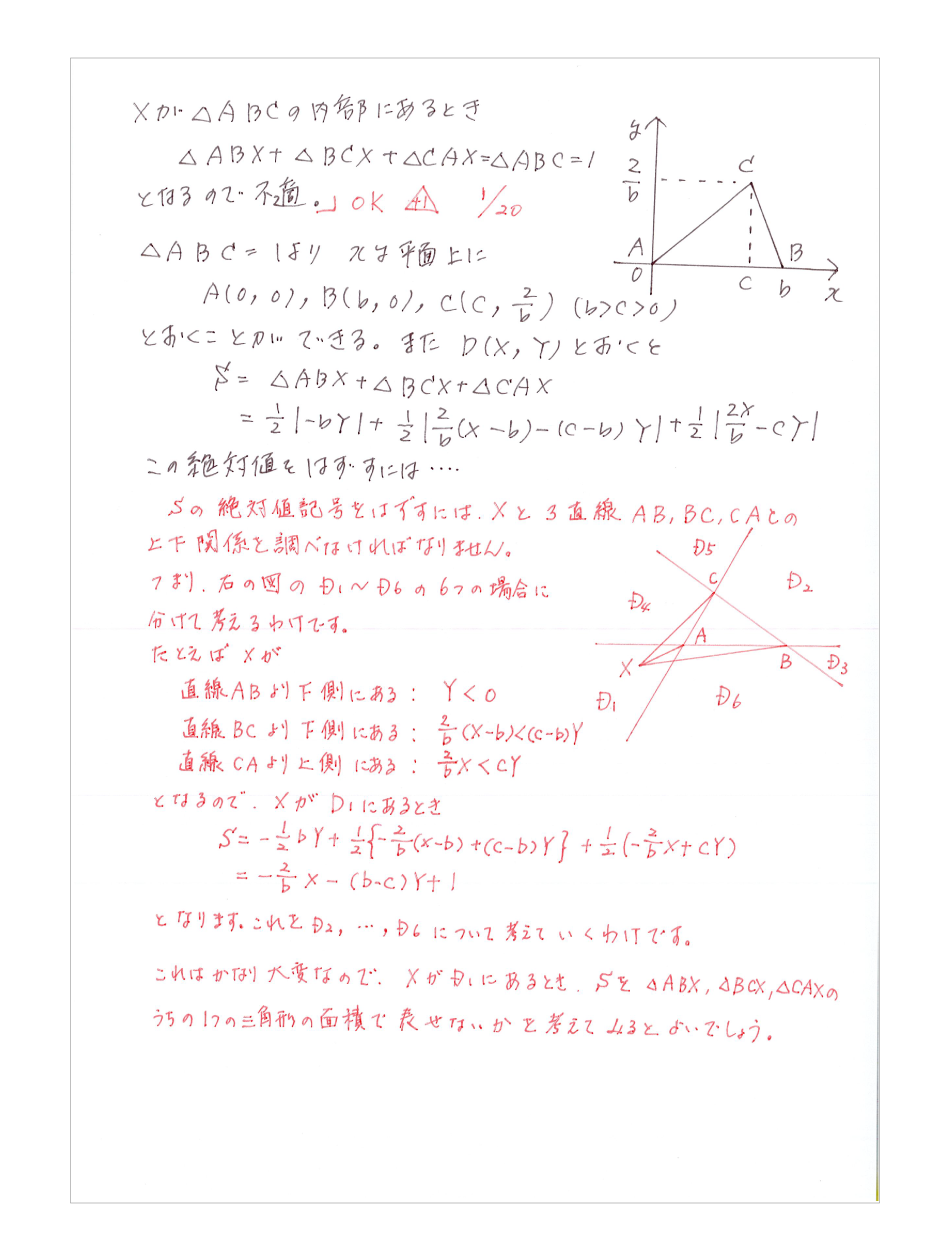 Xが△ABCの内部にあるとき
△ABX+△BCX+△CAX=△ABC=1
となるので不適。」OK +1 1/20
y
2/b
C
A
B
O
C
b
x
△ABC=1より xy平面上に
A(0,0), B(b,0), C(c, 2/b) (b>c>0)
とおくことができる。また D(X,Y)とおくと
S= △ABX+△BCX+△CAX
= 1/2|-bY|+ 1/2|2/b(X-b)-(c-b)Y|+1/2|2X/b-cY|
この絶対値をはずすには‥‥
Sの絶対値記号をはずすには、Xと3直線AB, BC, CAとの
上下関係を調べなければなりません。
つまり、右の図のD1〜D6の6つの場合に
分けて考えるわけです。
たとえばXが
直線ABより下側にある: Y<0
直線BCより下側にある: 2/b(X-b)<(c-b)Y
直線CAより上側にある: 2/bX<cY
D5
C
D2
D4
A
X
B
D3
D1
D6
となるので、XがD1にあるとき
S=-1/2bY+1/2{-2/b(X-b)+(c-b)Y}+1/2(-2/bX+cY)
=-2/bX-(b-c)Y+1
となります。これをD2, …, D6について考えていくわけです。
これはかなり大変なので、XがD1にあるとき、Sを△ABX, △BCX, △CAXの
うちの1つの三角形の面積で表せないかを考えてみるとよいでしょう。